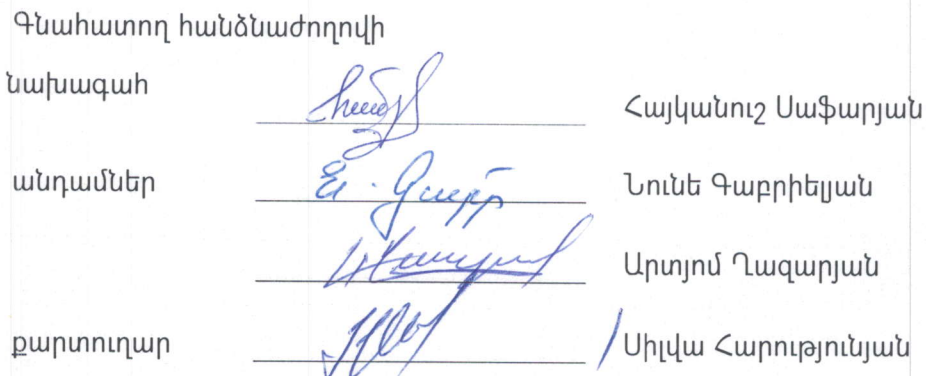 Գնահատող հանձնաժողովի
նախագահ Հայկանուշ Սաֆարյան
անդամներ Նունե Գաբրիելյան
Արտյոմ Ղազարյան
քարտուղար Սիլվա Հարությունյան